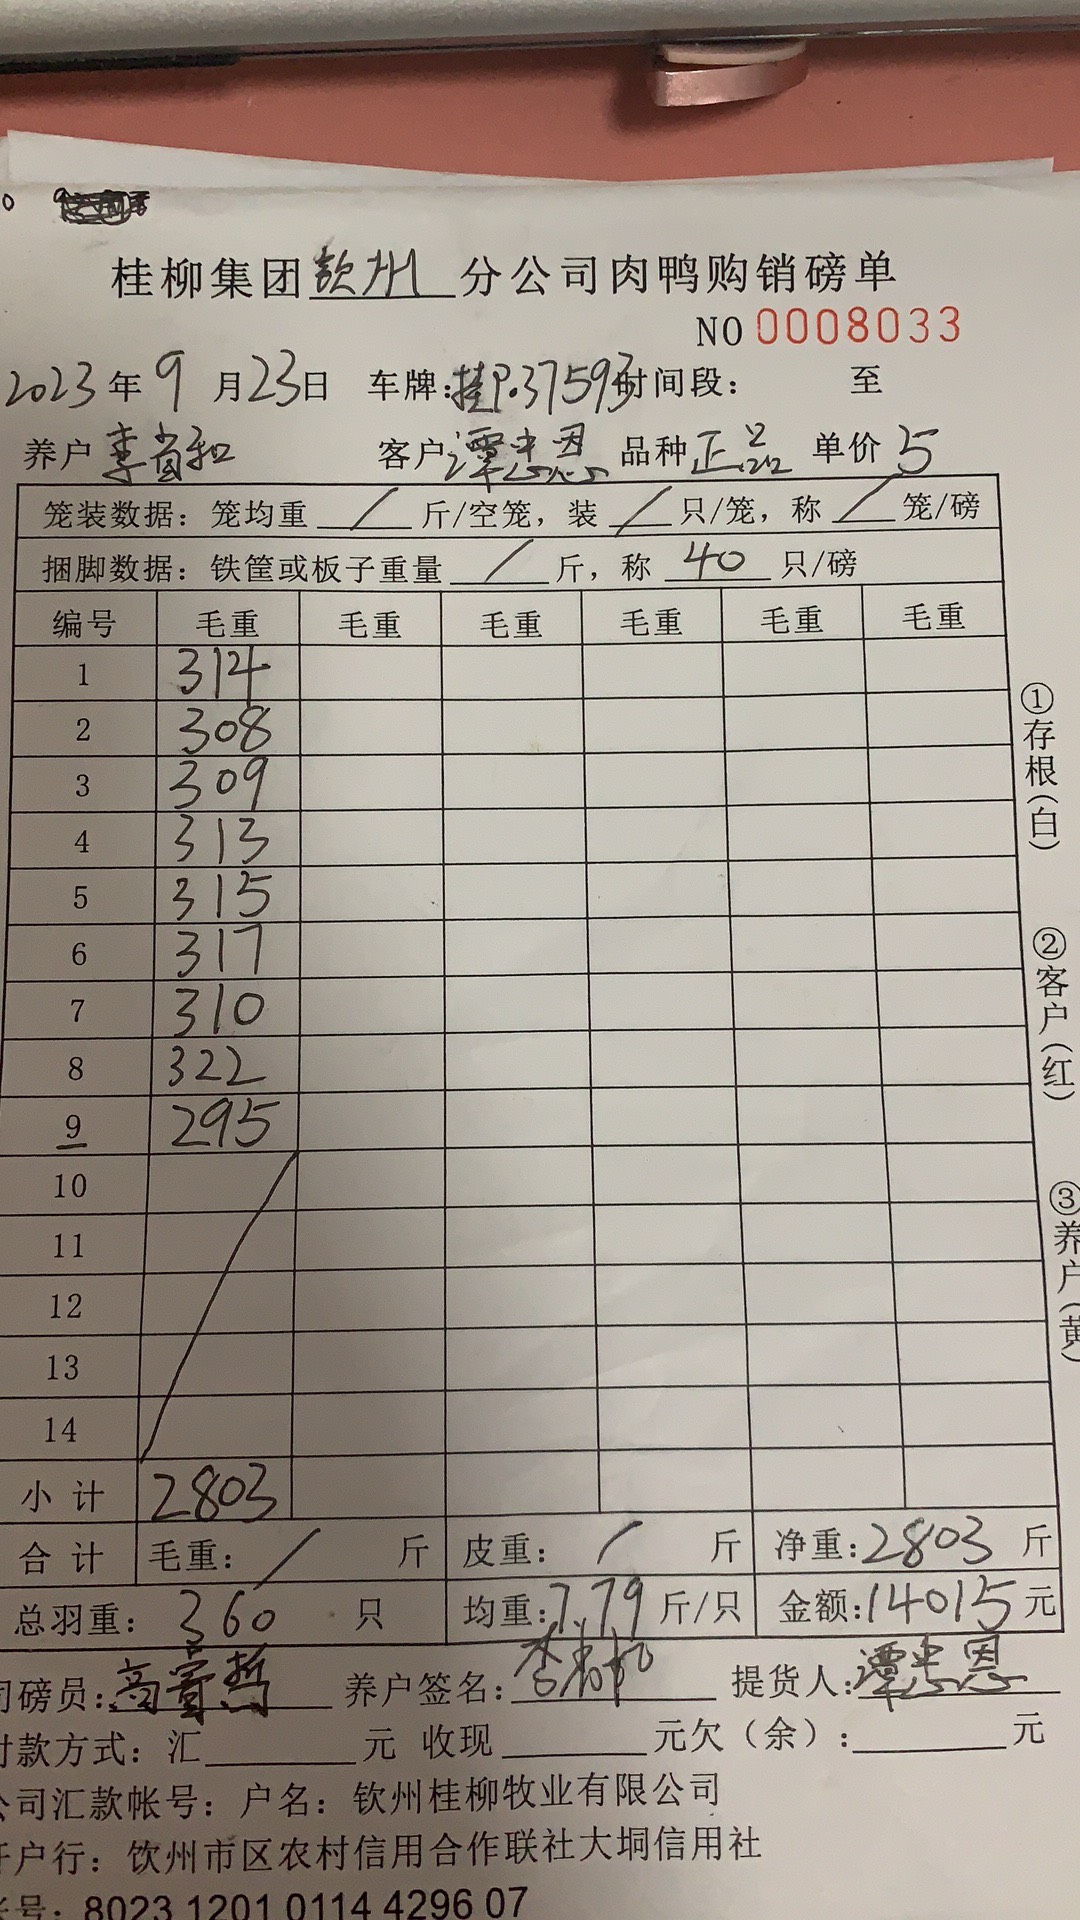 桂柳集团钦州分公司肉鸭购销磅单
NO 0008033
2023年9月23日 车牌:桂P.37593 时间段: 至
养户 李 和 客户 谭忠恩 品种 正品 单价 5
笼装数据: 笼均重 / 斤/空笼, 装 / 只/笼, 称 / 笼/磅
捆脚数据: 铁筐或板子重量 / 斤, 称 40 只/磅
编号 毛重 毛重 毛重 毛重 毛重 毛重
1 314
2 308
3 309
4 313
5 315
6 317
7 310
8 322
9 295
10
11
12
13
14
小计 2803
合计 毛重: / 斤 皮重: / 斤 净重:2803 斤
总羽重: 360 只 均重:7.79 斤/只 金额:14015元
司磅员: 养户签名: 提货人:谭忠恩
付款方式: 汇 元 收现 元欠(余): 元
公司汇款帐号: 户名: 钦州桂柳牧业有限公司
开户行: 钦州市区农村信用合作联社大垌信用社
帐号: 8023 1201 0114 4296 07
①存根(白)
②客户(红)
③养户(黄)